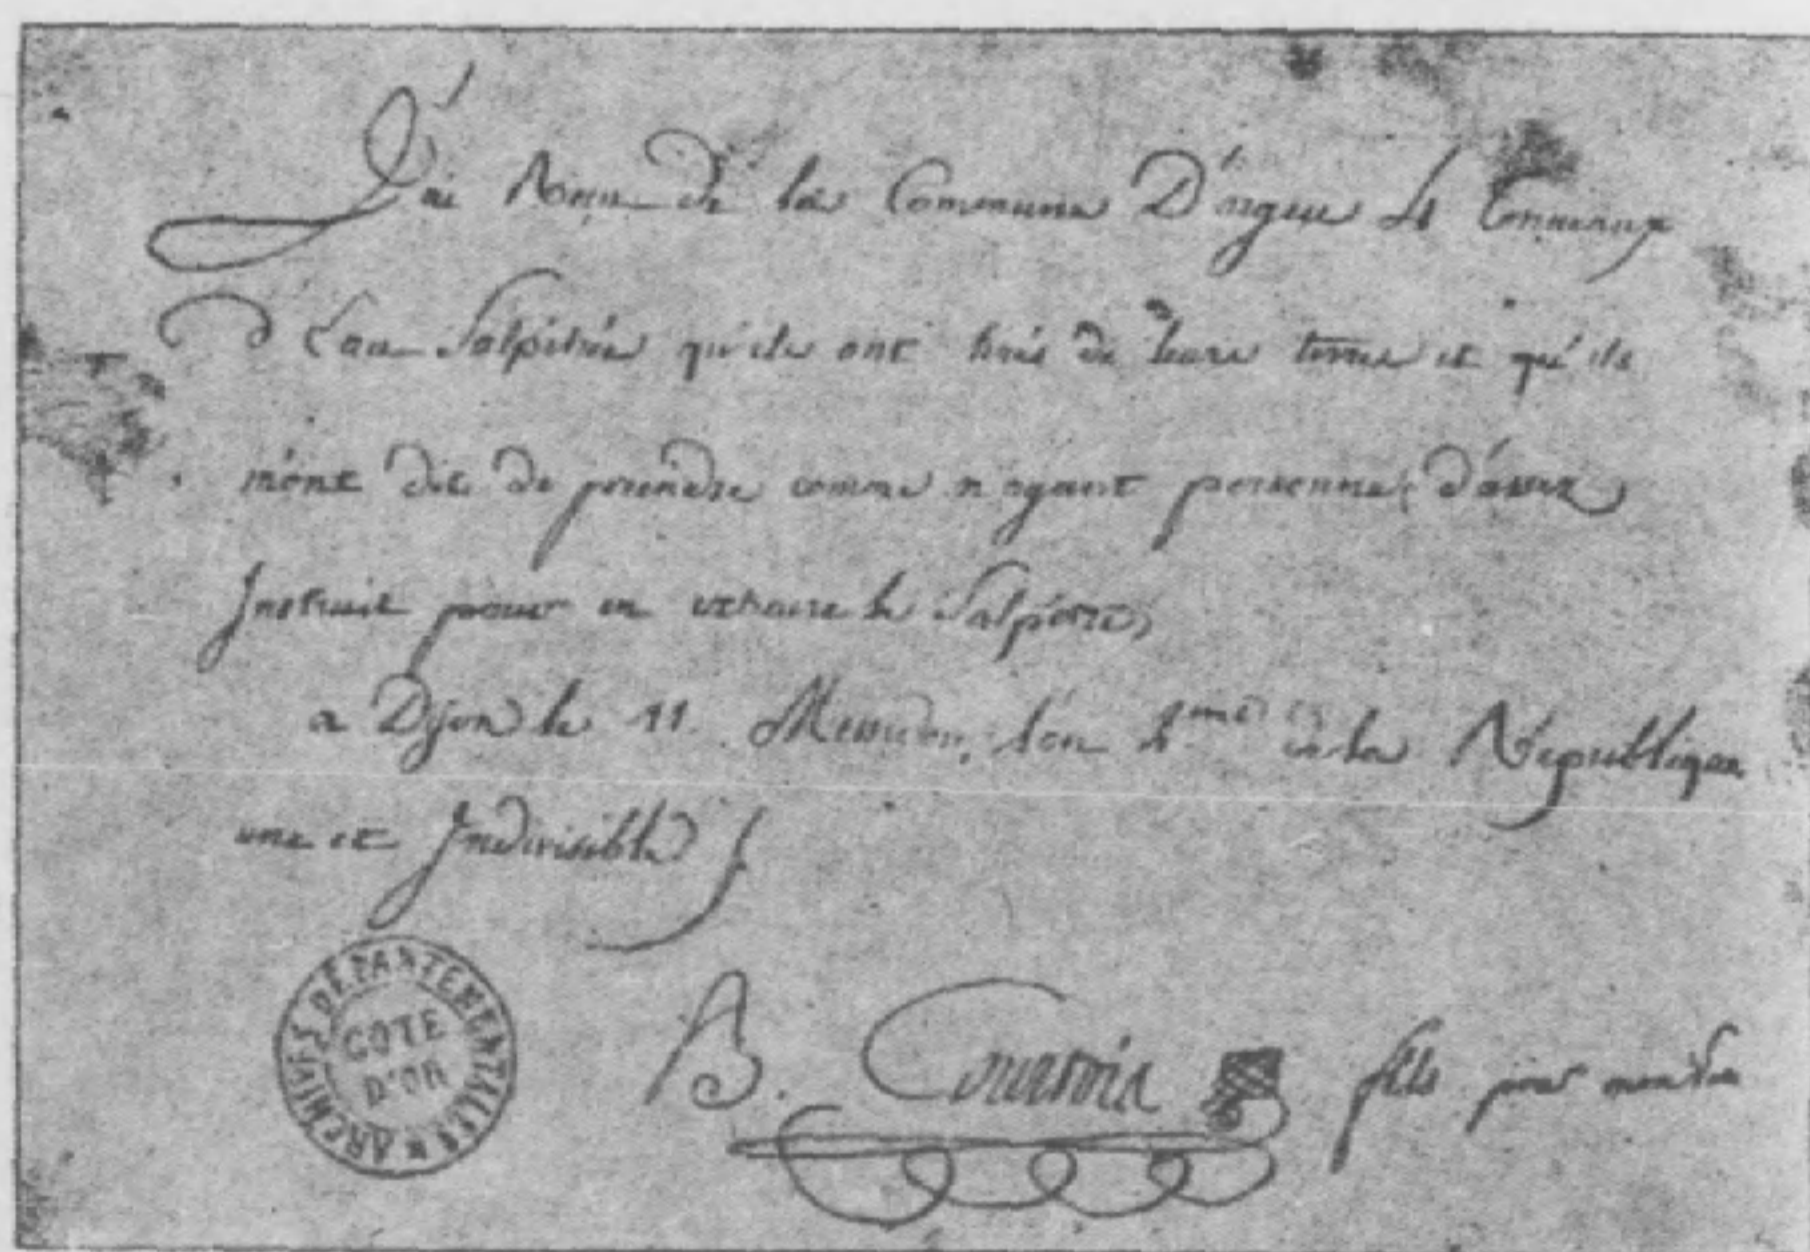 J'ai Reçu de la Commune D'argeu 4 Tonneaux
d'Eau Salpétrée qu'ils ont tirés de leurs terres et qu'ils
m'ont dit de prendre comme n'ayant personne d'assez
Instruit pour en extraire le Salpétre,
a Dijon le 11 Messidor, l'an 2.me de la République
une et Indivisible
ARCHIVES DÉPARTEMENTALES
COTE
D'OR
B. Courtois fils pour mon